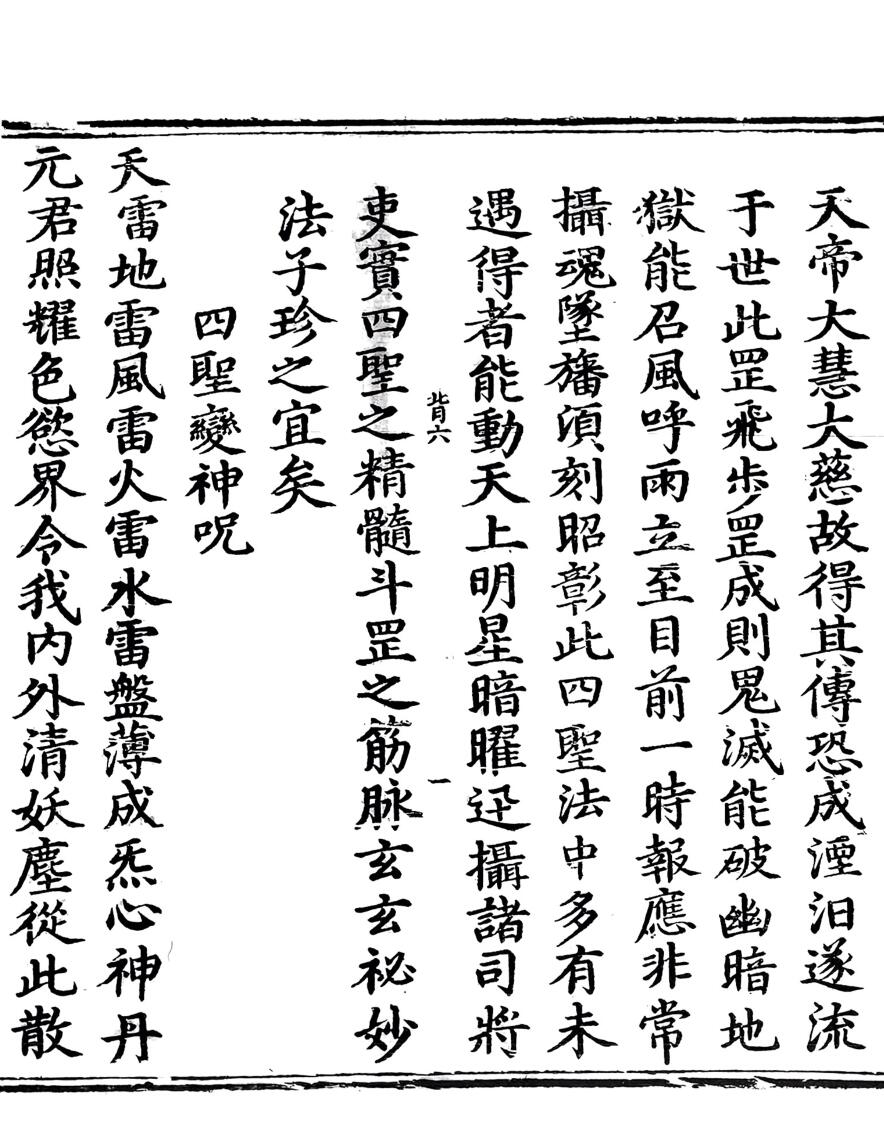 天帝大慧大慈故得其傳恐成湮汩遂流
于世此罡飛步罡成則鬼滅能破幽暗地
獄能召風呼雨立至目前一時報應非常
攝魂墜旛須刻昭彰此四聖法中多有未
遇得者能動天上明星暗曜迅攝諸司將
背六 一
吏實四聖之精髓斗罡之筋脉玄玄祕妙
法子珍之宜矣
四聖變神呪
天雷地雷風雷火雷水雷盤薄成炁心神丹
元君照耀色慾界令我内外清妖塵從此散